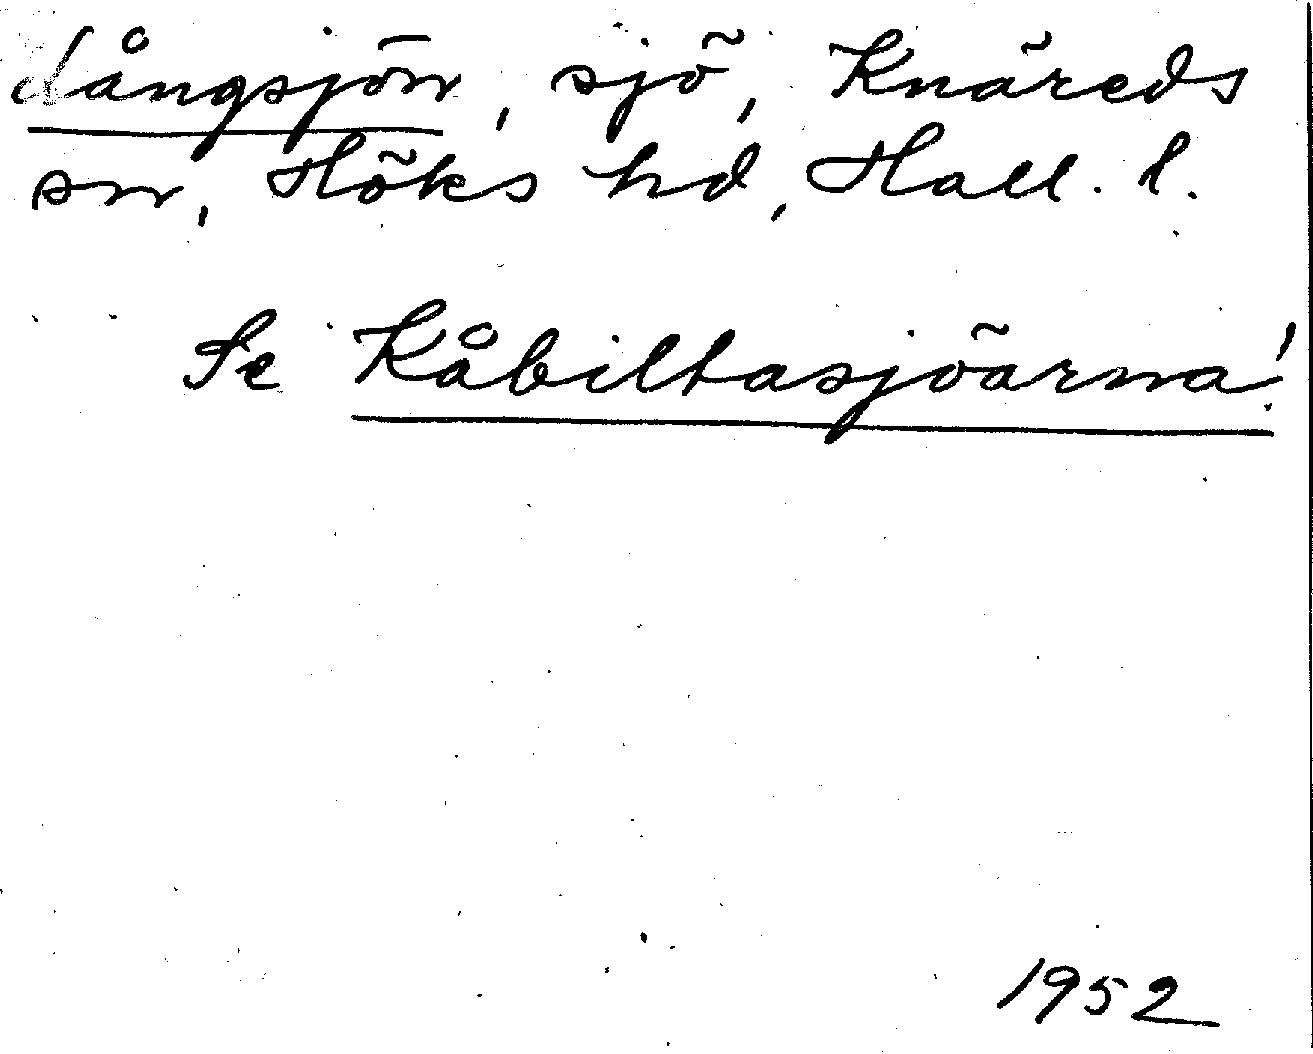 Långsjön, sjö, Knäreds
sn, Höks hd, Hall. l.
Se Kåbiltasjöarna!
1952